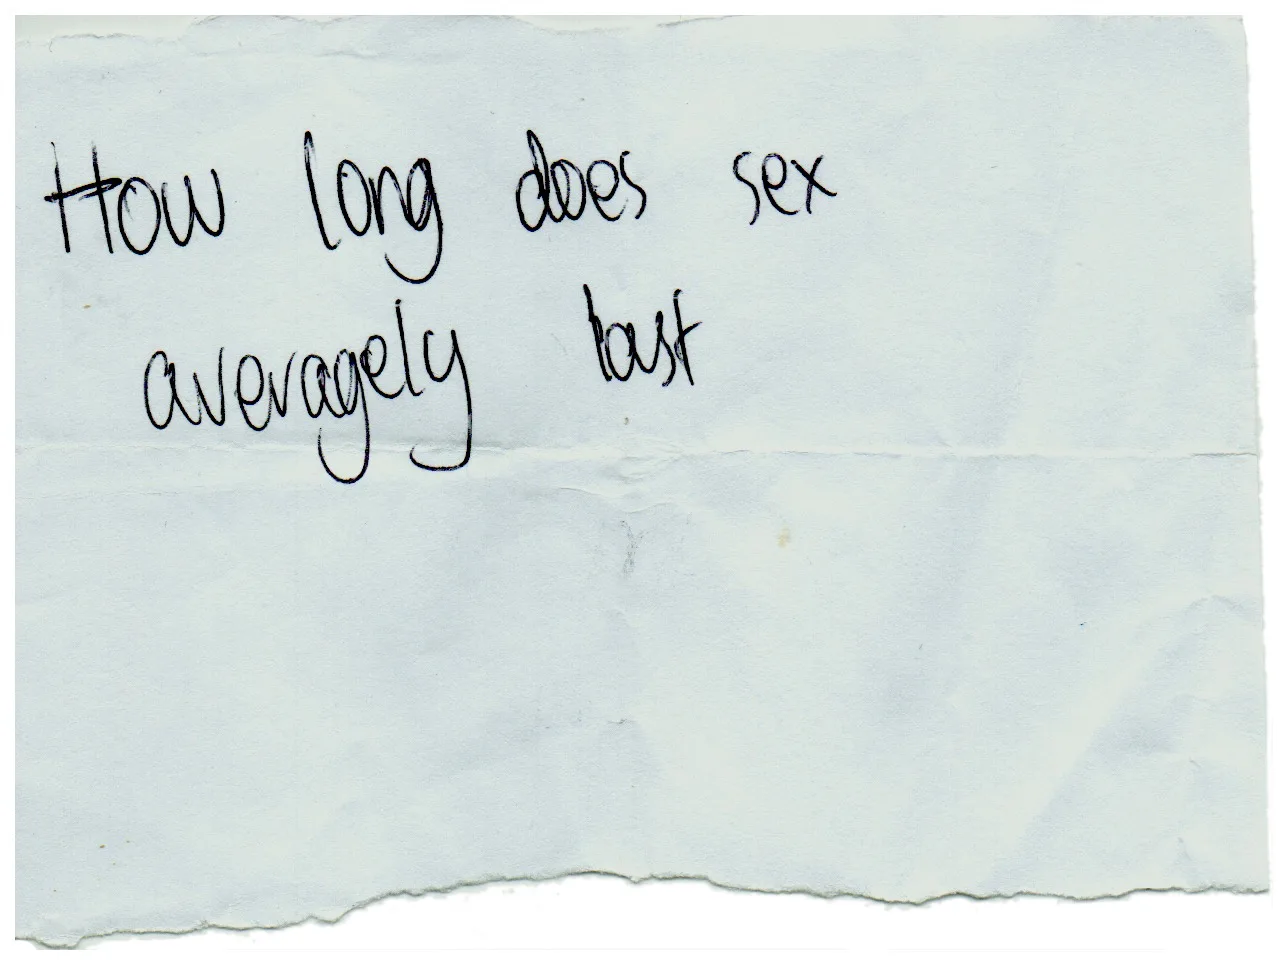 How long does sex
averagely last